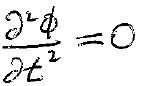 ∂²ϕ/∂t² = 0